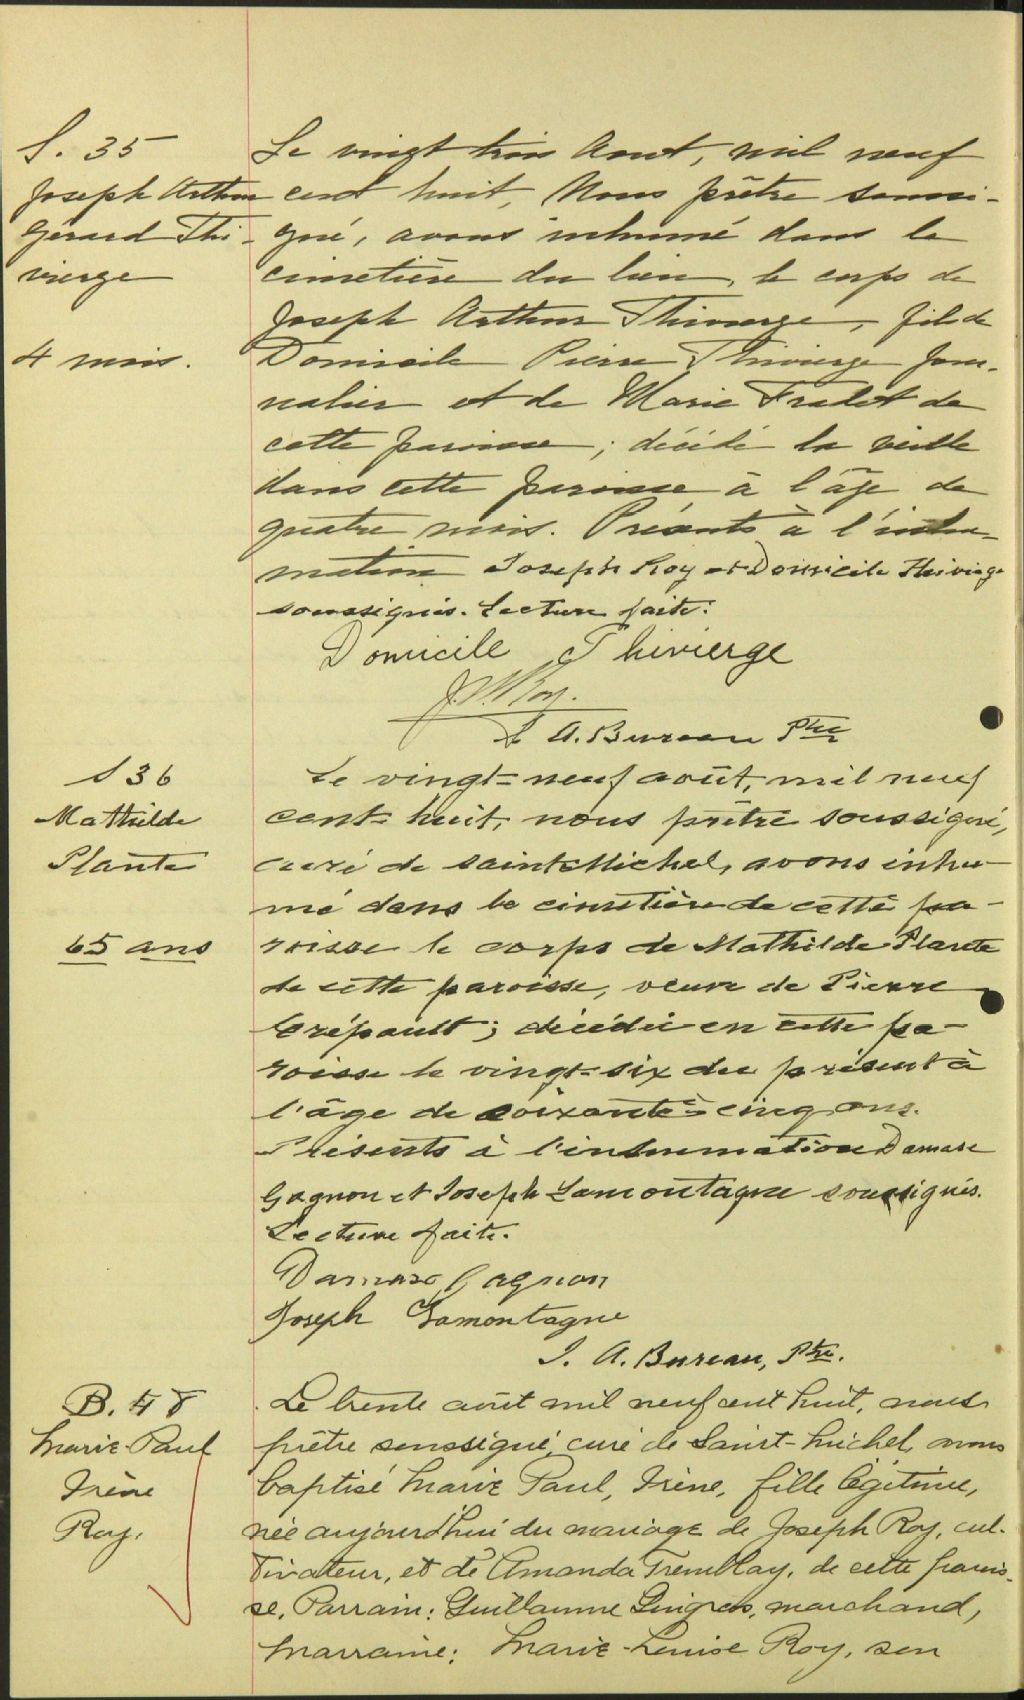 S. 35
Joseph Arthur
Gérard Thi-
vierge
4 mois.
Le vingt trois Aout, mil neuf
cent huit, Nous prêtre soussi-
gné, avons inhumé dans le
cimetière du lieu, le corps de
Joseph Arthur Thivierge, fils de
Domicile Pierre Thivierge jour-
nalier et de Marie Fradet de
cette paroisse; décédé la veille
dans cette paroisse à l'âge de
quatre mois. Présents à l'inhu-
mation Joseph Roy et Domicile Thivierge
soussignés. Lecture faite.
Domicile Thivierge
Roy.
A. Bureau Ptre
S 36
Mathilde
Plante
65 ans
Le vingt-neuf août, mil neuf
cent-huit, nous prêtre soussigné,
curé de saint Michel, avons inhu-
mé dans le cimetière de cette pa-
roisse le corps de Mathilde Plante
de cette paroisse, veuve de Pierre
Crépault; décédée en cette pa-
roisse le vingt-six du présent à
l'âge de soixante-cinq ans.
Présents à l'inhumation Damase
Gagnon et Joseph Lamontagne soussignés.
Lecture faite.
Damase Gagnon
Joseph Lamontagne
J. A. Bureau, Ptre.
B. 48
Marie-Paul
Irène
Roy.
Le trente août mil neuf cent huit, nous
prêtre soussigné, curé de Saint-Michel, avons
baptisé Marie Paul, Irène, fille légitime,
née aujourd'hui du mariage de Joseph Roy, cul-
tivateur, et de Amanda Tremblay, de cette parois-
se. Parrain: Guillaume Gingras, marchand,
Marraine: Marie-Louise Roy, son